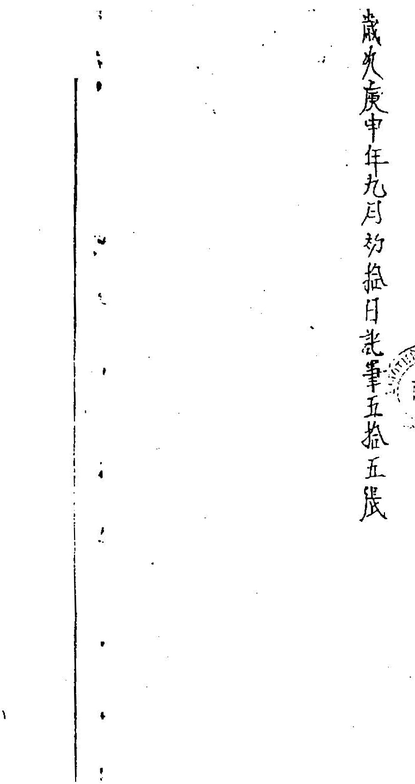 歳次庚申年九月初拾日訖筆五拾五張